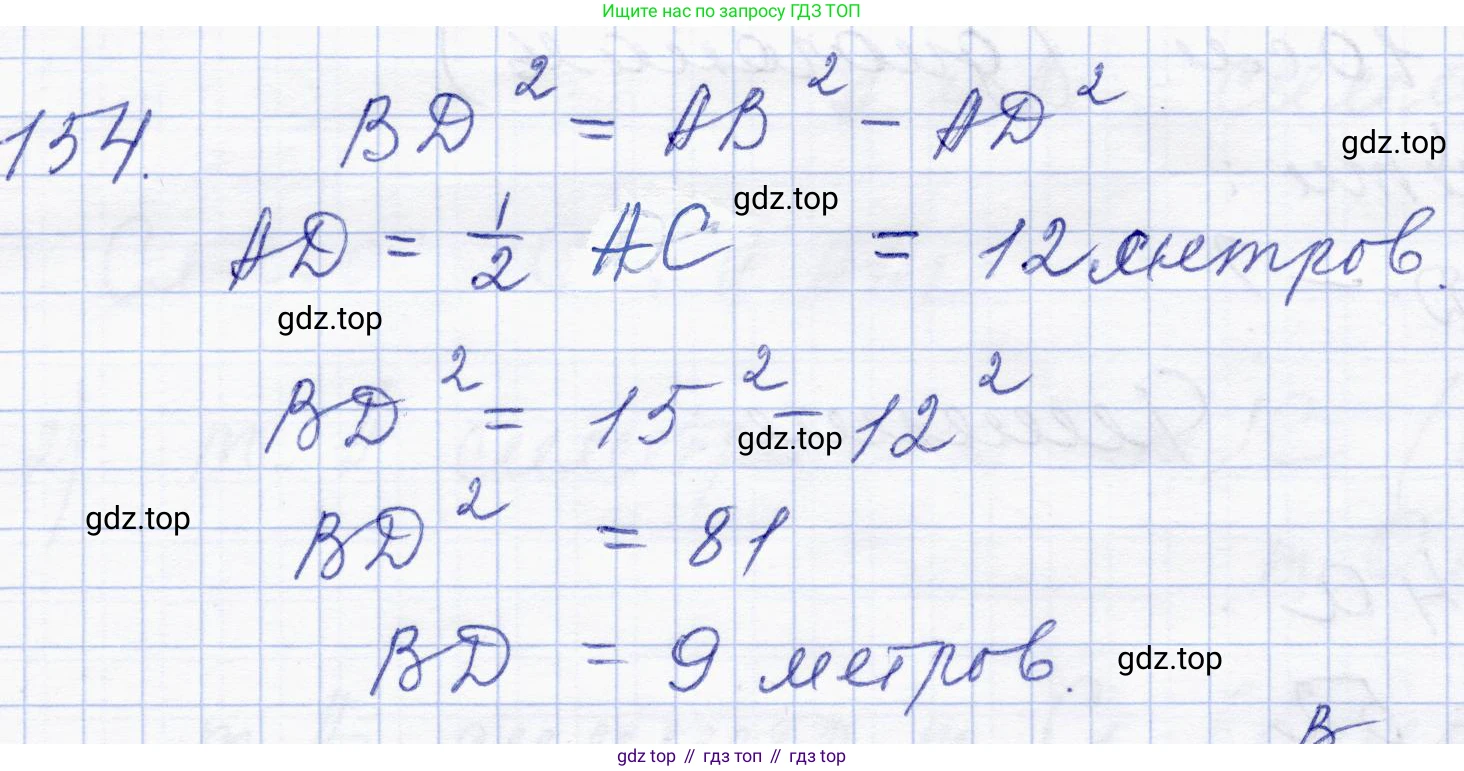 Ищите нас по запросу ГДЗ ТОП
154. BD² = AB² - AD²
gdz.top
gdz.top
AD = 1/2 AC = 12 метров.
gdz.top
BD² = 15² - 12²
gdz.top
gdz.top
BD² = 81
BD = 9 метров.
gdz.top
B
gdz top // гдз топ // гдз top